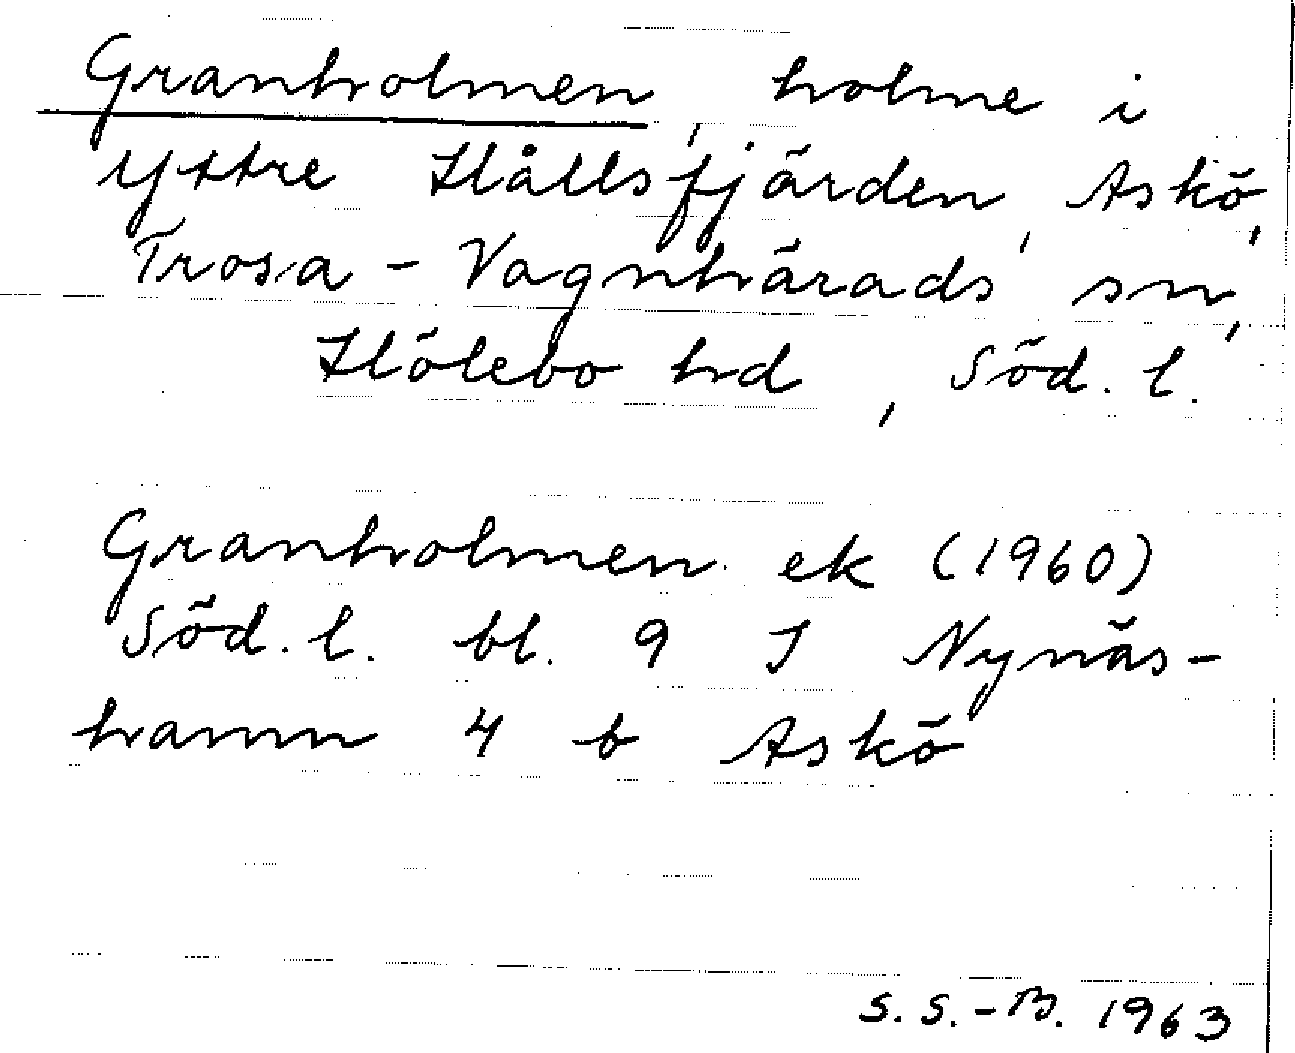 Granholmen, holme i
Yttre Hållsfjärden, Askö,
Trosa-Vagnhärads sn,
Hölebo hd, Söd. l.
Granholmen ek (1960)
Söd. l. bl. 9 J Nynäs-
hamn 4 b Askö
S. S.-B. 1963